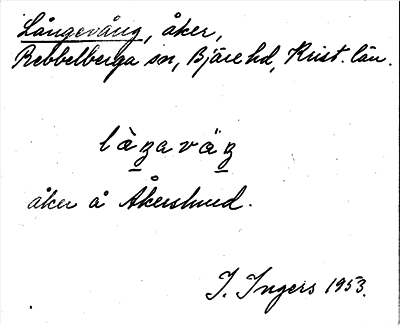 Långevång, åker,
Rebbelberga sn, Bjäre hd, Krist. län.
låŋavåŋ
åker å Åkerslund.
I. Ingers 1953.